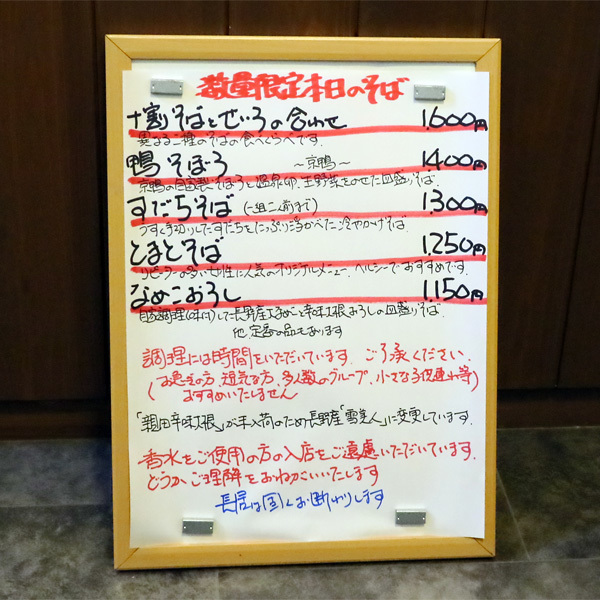 数量限定本日のそば
十割そばとせいろの合わせ 1.600円
異なる二種のそばの食べくらべです.
鴨そぼろ ～京鴨～ 1400円
京鴨の自家製そぼろと温泉卵、玉野菜をのせた皿盛りそば.
すだちそば (一組二人前まで) 1.300円
うすく手切りしたすだちをたっぷり浮かべた冷やかけそば.
とまとそば 1.250円
リピーターの多い女性に人気のオリジナルメニュー、ヘルシーでおすすめです.
なめこおろし 1.150円
自家調理(味付)した長野産なめこと辛味大根おろしの皿盛りそば.
他、定番の品もあります
調理には時間をいただいています. ご了承ください.
(お急ぎの方、短気な方、多人数のグループ、小さな子供連れ等)
おすすめいたしません
「親田辛味大根」が未入荷のため長野産「雪美人」に変更しています.
香水をご使用の方の入店をご遠慮いただいています.
どうかご理解をおねがいいたします
長居は固くお断わりします